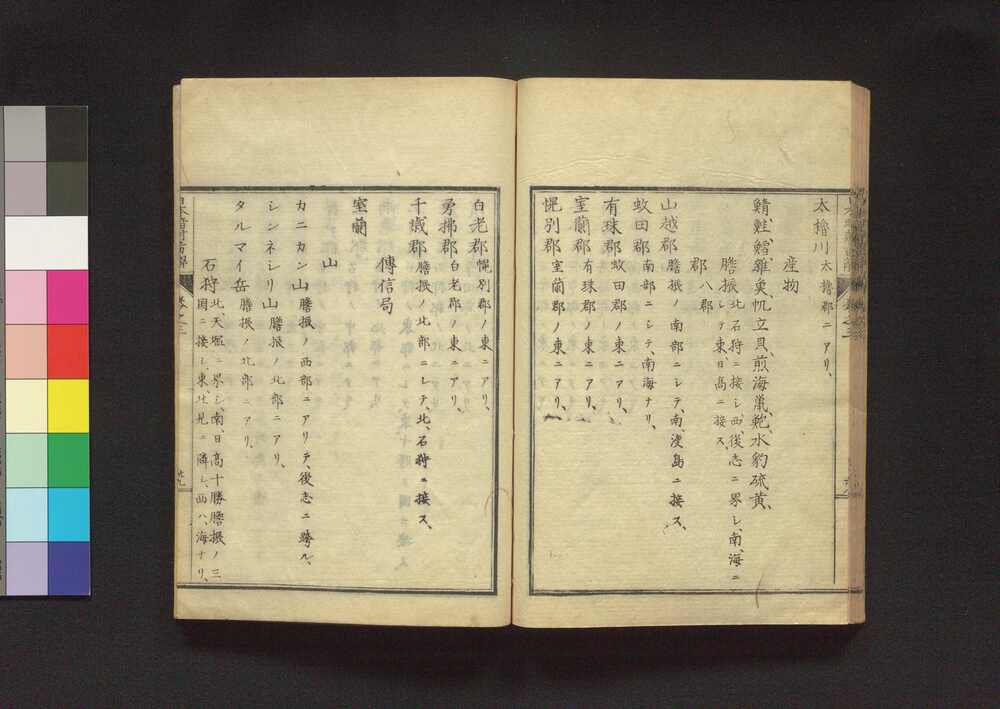 太櫓川 太櫓郡ニアリ、
産物
鯖、鮭、鱈、雜魚、帆立貝、煎海鼠、乾水豹、硫黄、
膽振 北、石狩ニ接シ、西、後志ニ界シ、南、海ニ
シテ東、日高ニ接ス、
郡 八郡
山越郡 膽振ノ南部ニシテ、南、渡島ニ接ス、
虻田郡 南部ニシテ、南海ナリ、
有珠郡 虻田郡ノ東ニアリ、
室蘭郡 有珠郡ノ東ニアリ、
幌別郡 室蘭郡ノ東ニアリ、
白老郡 幌別郡ノ東ニアリ、
勇拂郡 白老郡ノ東ニアリ、
千歳郡 膽振ノ北部ニシテ、北、石狩ニ接ス、
傳信局
室蘭
山
カニカン山 膽振ノ西部ニアリテ、後志ニ跨ル、
シンネシリ山 膽振ノ北部ニアリ、
タルマイ岳 膽振ノ北部ニアリ、
石狩 北、天塩ニ界シ、南、日高十勝膽振ノ三
國ニ接シ、東、北見ニ隣シ、西ハ、海ナリ、